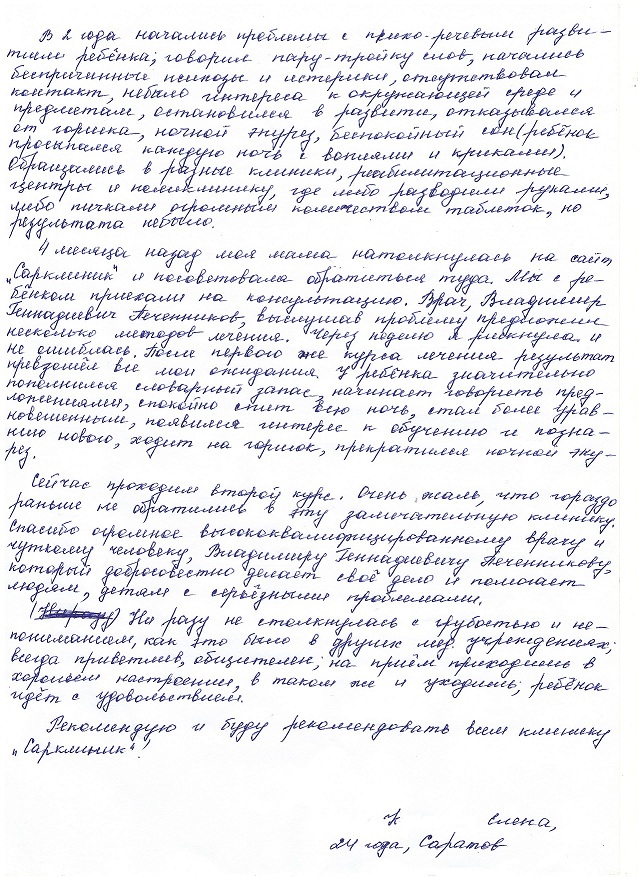 В 2 года начались проблемы с психо-речевым разви-
тием ребёнка; говорил пару-тройку слов, начались
беспричинные психозы и истерики, отсутствовал
контакт, небыло интереса к окружающей среде и
предметам, остановился в развити, отказывался
от горшка, ночной энурез, беспокойный сон (ребёнок
просыпался каждую ночь с воплями и криками).
Обращались в разные клиники, реабилитационные
центры и поликлинику, где либо разводили руками,
либо пичкали огромным количеством таблеток, но
результата небыло.
4 месяца назад моя мама натолкнулась на сайт
„Сарклиник“ и посоветовала обратиться туда. Мы с ре-
бёнком приехали на консультацию. Врач, Владимир
Геннадиевич Печенников, выслушав проблему предложил
несколько методов лечения. Через неделю я рискнула и
не ошиблась. После первого же курса лечения результат
превзошёл все мои ожидания. У ребёнка значительно
пополнился словарный запас, начинает говорить пред-
ложениями, спокойно спит всю ночь, стал более урав-
новешенным, появился интерес к обучению и позна-
нию нового, ходит на горшок, прекратился ночной эну-
рез.
Сейчас проходим второй курс. Очень жаль, что гораздо
раньше не обратились в эту замечательную клинику.
Спасибо огромное высококвалифицированному врачу и
чуткому человеку, Владимиру Геннадиевичу Печенникову,
который добросовестно делает своё дело и помогает
людям, детям с серьёзными проблемами.
(Ни разу) Ни разу не столкнулась с грубостью и не-
пониманием, как это было в других мед. учреждениях;
всегда приветлив, общителен; на приём приходишь в
хорошем настроении, в таком же и уходишь; ребёнок
идёт с удовольствием.
Рекомендую и буду рекомендовать всем клинику
„Сарклиник“!
К Елена,
24 года, Саратов